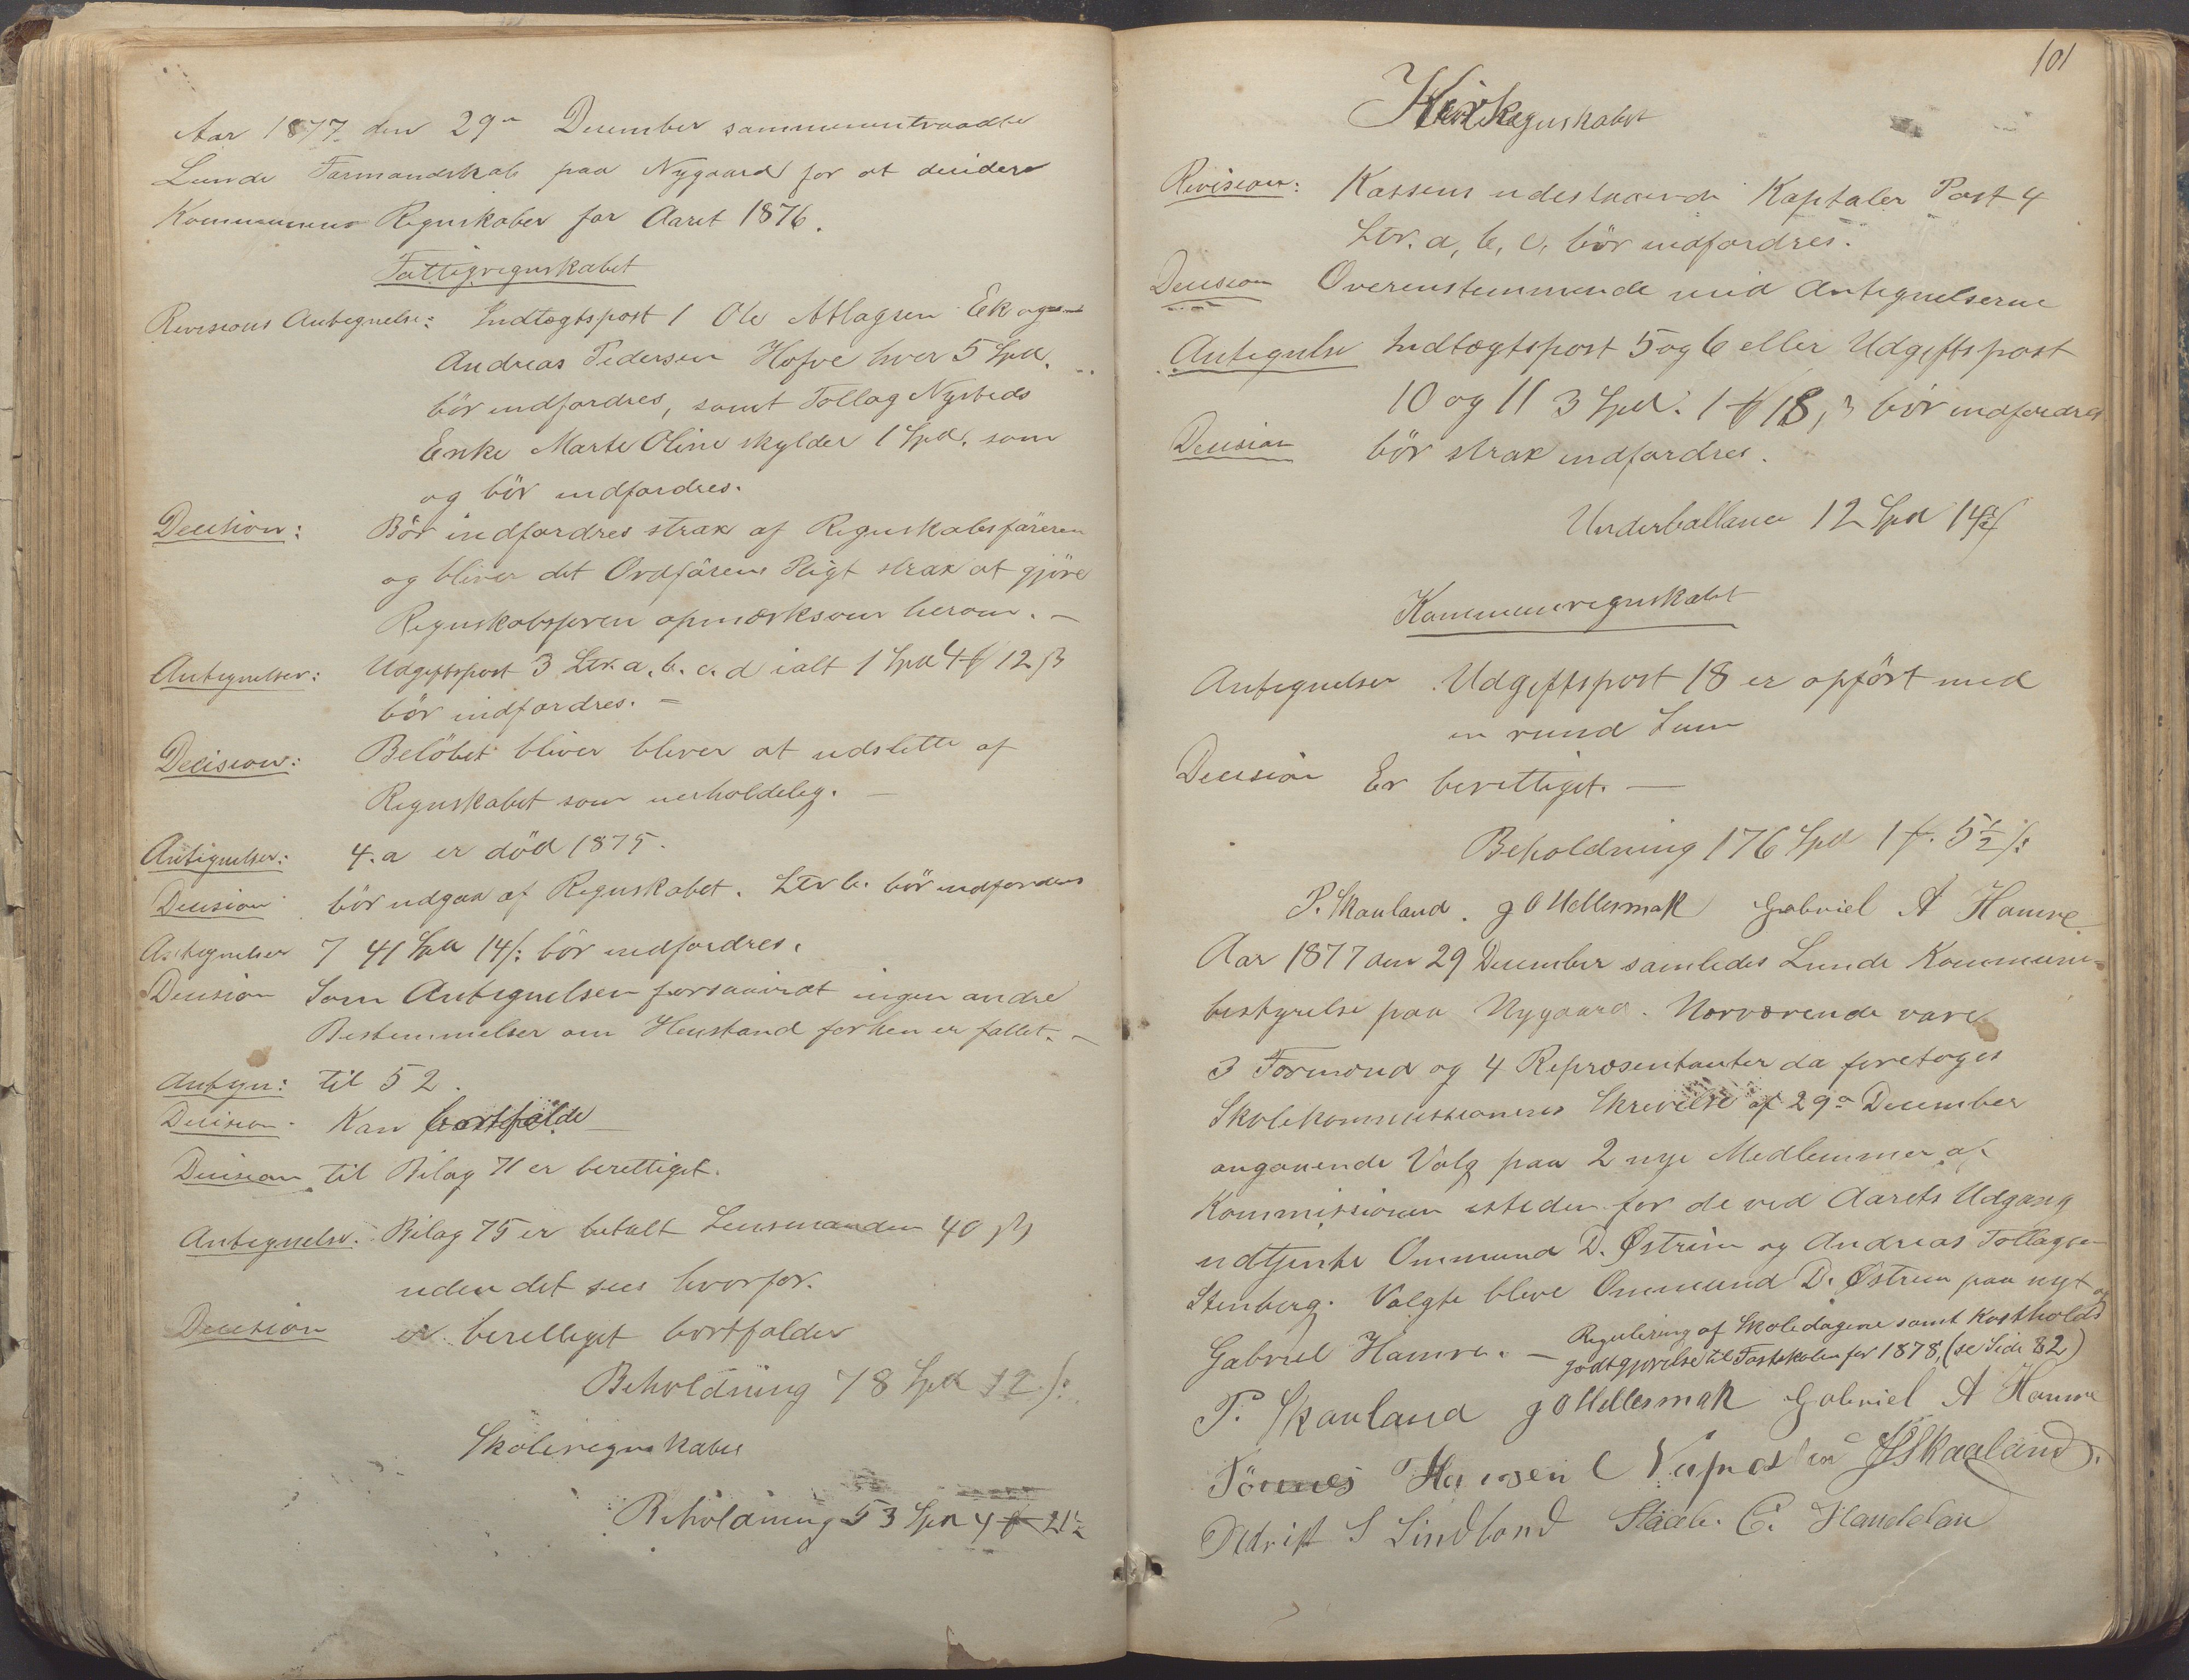 Aar 1877 den 29de December sammentraadte
Lunde Formandskab paa Nygaard for at decidere
Kommunens Regnskaber for Aaret 1876.
Fattigregnskabet
Revisions Antegnelse: Indtægtspost 1 Ole Atlagsen Ek og
Andreas Pedersen Hofve hver 5 Spd.
bör indfordres, samt Tollag Nysteds
Enke Marte Oline skylder 1 Spd. som
og bör indfordres.
Decision: Bör indfordres strax af Regnskabsföreren
og bliver det Ordförens Pligt strax at gjöre
Regnskabsfören opmærksom herom. —
Antegnelser: Udgiftspost 3 Ltr. a. b. c. d ialt 1 Spd 4 12 ß
bör indfordres. —
Decision: Belöbet bliver bliver at udslette af
Regnskabet som uerholdelig. —
Antegnelser: 4. a er död 1875.
Decision bör udgaa af Regnskabet. Ltr b. bör indfordres
Antegnelser 7 41 Spd 14 ß bör indfordres.
Decision Som Antegnelsen forsaavidt ingen andre
Bestemmelser om Henstand forhen er fattet. —
Antegn: til 52.
Decision. Kan bortfalde
Decision til Bilag 71 er berettiget.
Antegnelse. Bilag 75 er betalt Lensmanden 40 ß
uden det sees hvorfor.
Decision er berettiget bortfalder
Beholdning 78 Spd 12 ß
Skoleregnskabet
Beholdning 53 Spd 4 21½
101
Kirkeregnskabet
Revision: Kassens udestaaende Kaptaler Post 4
Ltr. a, b, c, bör indfordres.
Decision Overenstemmende med Antegnelserne
Antegnelse Indtægtspost 5 og 6 eller Udgiftspost
10 og 11 3 Spd. 1 18 ß bör indfordres
Decision bör strax indfordres.
Underballance 12 Spd 14½ ß
Kommuneregnskabet
Antegnelser Udgiftspost 18 er opfört med
en rund Sum
Decision Er berettiget. —
Beholdning 176 Spd 1 5½ ß
P. Skauland. G O Mellesmak Gabriel A Hamre
Aar 1877 den 29 December samledes Lunde Kommune-
bestyrelse paa Nygaard. Nærværende vare
3 Formænd og 4 Repræsentanter da foretoges
Skolekommissionens Skrivelse af 29de December
angaaende Valg paa 2 nye Medlemmer af
Kommissionen isteden for de ved Aarets Udgang
udtjente Ommund D. Østrem og Andreas Tollagsen
Stenberg. Valgte bleve Ommund D. Østrem paa nyt og
Gabriel Hamre. — Regulering af Skoledagene samt Kostholds
godtgjörelse til Fastskolen for 1878, (se Side 82)
P. Skauland G O Mellesmak Gabriel A Hamre
Tönnes Hansen Skaaland.
Didrik S Lindland C. Handeland